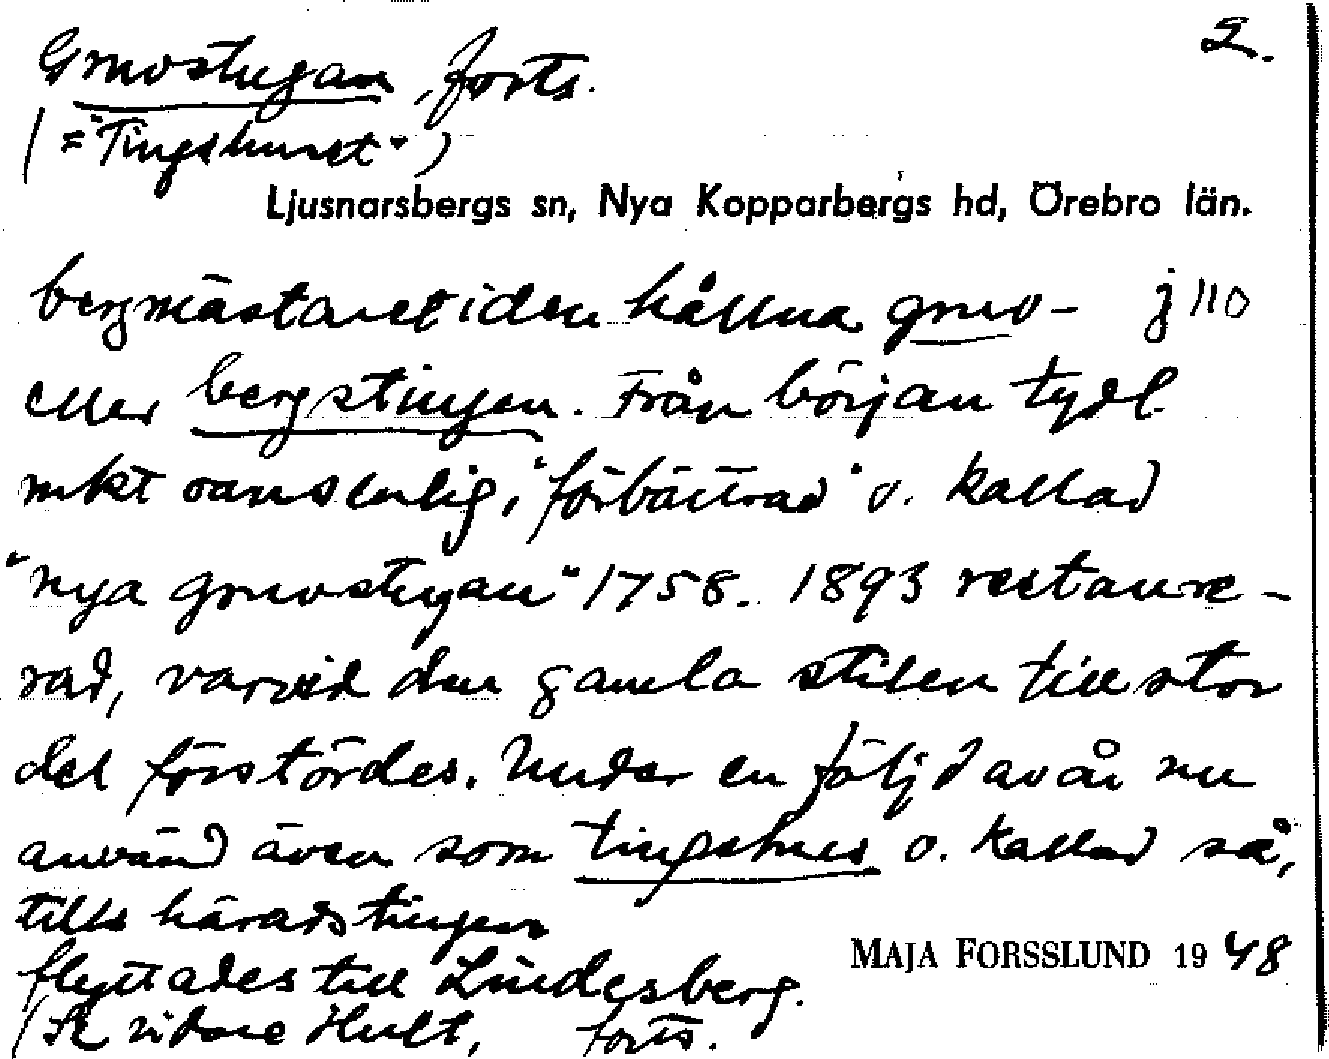 2.
Gruvstugan, forts.
(="Tingshuset")
Ljusnarsbergs sn, Nya Kopparbergs hd, Örebro län.
bergmästaretiden hållna gruv- j 110
eller bergstingen. Från början tydl.
mkt oansenlig, "förbättrad" o. kallad
"nya gruvstugan" 1758. 1893 restaure-
rad, varvid den gamla stilen till stor
del förstördes. Under en följd av år nu
använd även som tingshus o. kallad så,
tills häradstingen
flyttades till Lindesberg.
MAJA FORSSLUND 1948
(Se vidare Hult, forts.